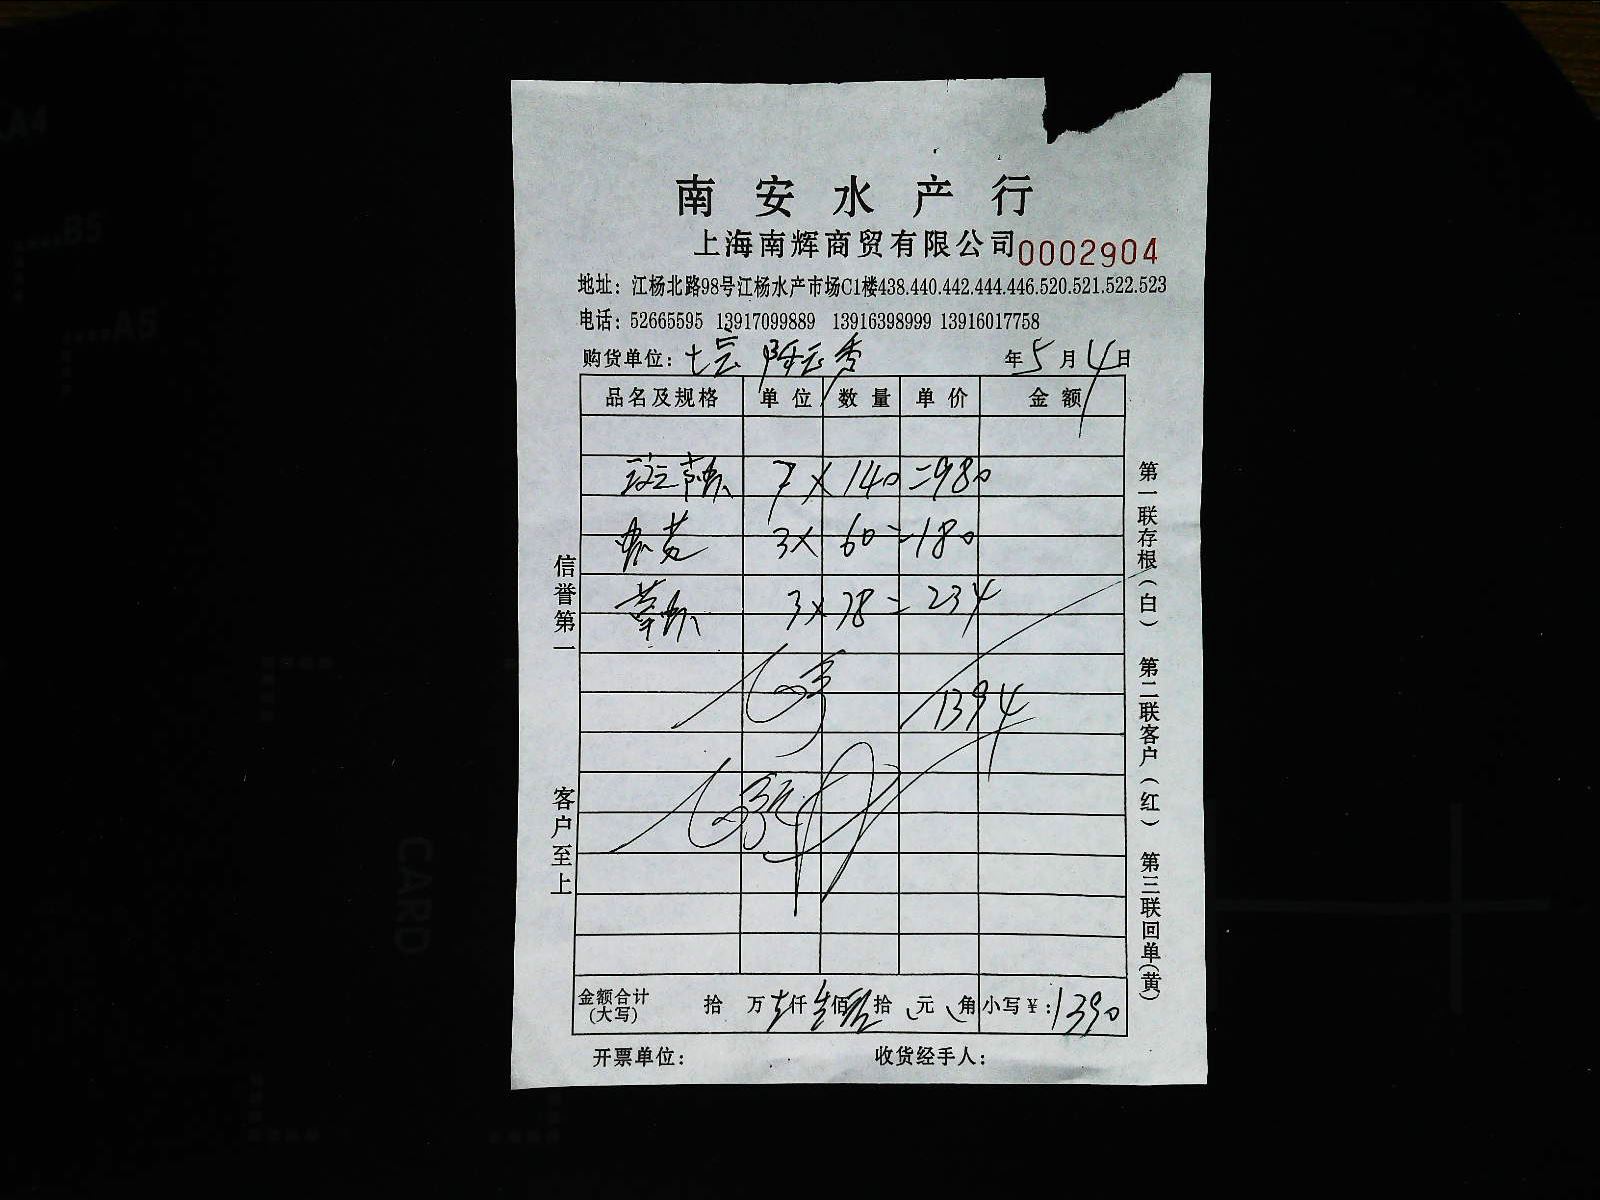 南安水产行
上海南辉商贸有限公司 0002904
地址：江杨北路98号江杨水产市场C1楼438.440.442.444.446.520.521.522.523
电话：52665595 13917099889 13916398999 13916017758
购货单位：七宗 陈云秀 年5月4日
品名及规格 单位 数量 单价 金额
斑节虾 7×140=980
3×60=180
草虾 3×78=234
1394
金额合计(大写) 拾 万 仟 佰 拾 元 角 小写¥：1390
开票单位： 收货经手人：
信誉第一
客户至上
第一联存根(白) 第二联客户(红) 第三联回单(黄)
A4
B5
A5
CARD